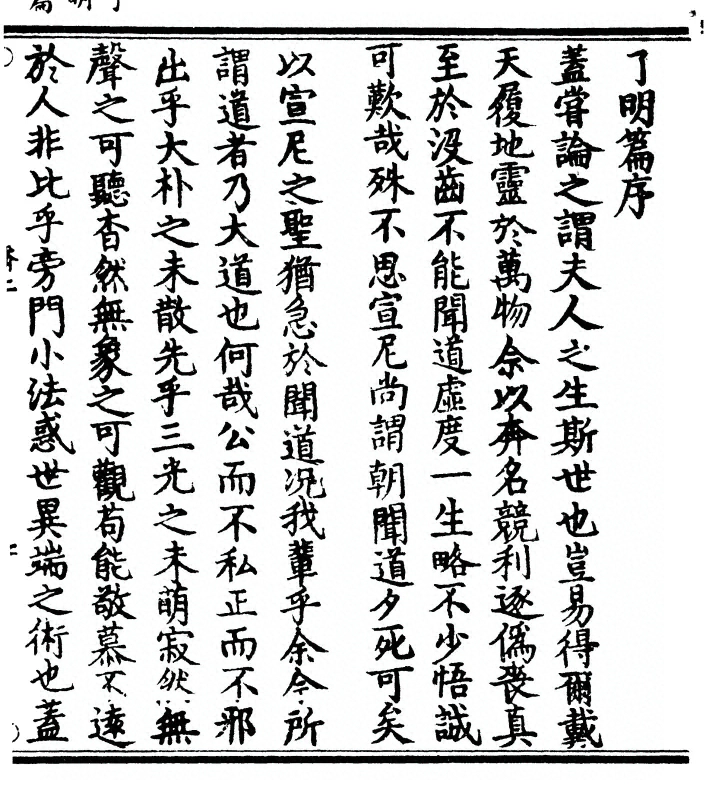 了明篇序
蓋嘗論之謂夫人之生斯世也豈易得爾戴
天履地靈於萬物余以奔名競利逐偽喪真
至於沒齒不能聞道虛度一生略不少悟誠
可歎哉殊不思宣尼尚謂朝聞道夕死可矣
以宣尼之聖猶急於聞道况我輩乎余今所
謂道者乃大道也何哉公而不私正而不邪
出乎大朴之未散先乎三光之未萌寂然無
聲之可聽杳然無象之可觀苟能敬慕不遠
於人非比乎旁門小法惑世異端之術也蓋